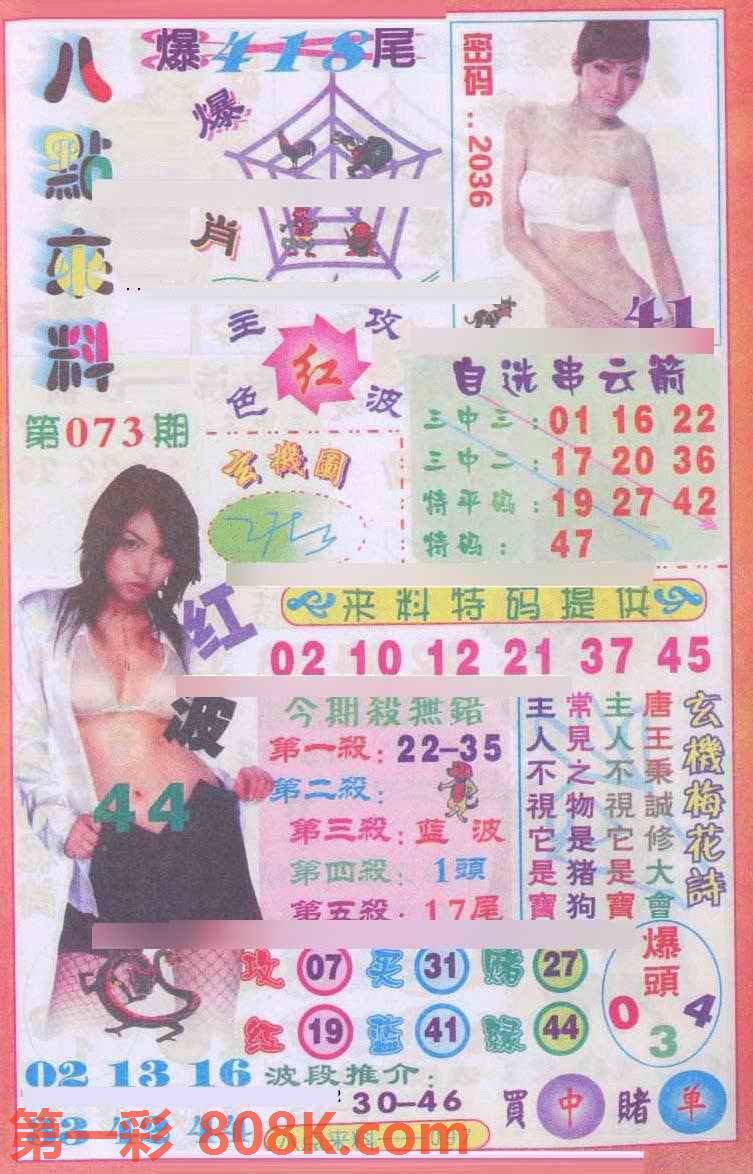 八點來料
爆418尾
爆
肖
密码..2036
41
主攻
红
色波
第073期
玄機圖
自选串云箭
三中三:01 16 22
三中二:17 20 36
特平码:19 27 42
特码:47
来料特码提供
02 10 12 21 37 45
红
波
44
今期殺無錯
第一殺:22-35
第二殺:
第三殺:蓝波
第四殺:1頭
第五殺:17尾
玄機梅花詩
唐王秉誠修大會
主人不視它是寶
常見之物是猪狗
主人不視它是寶
攻 07 买 31 赌 27
红 19 蓝 41 绿 44
爆頭
0 3 4
02 13 16
波段推介:
30-46
買中賭单
第一彩 808K.com